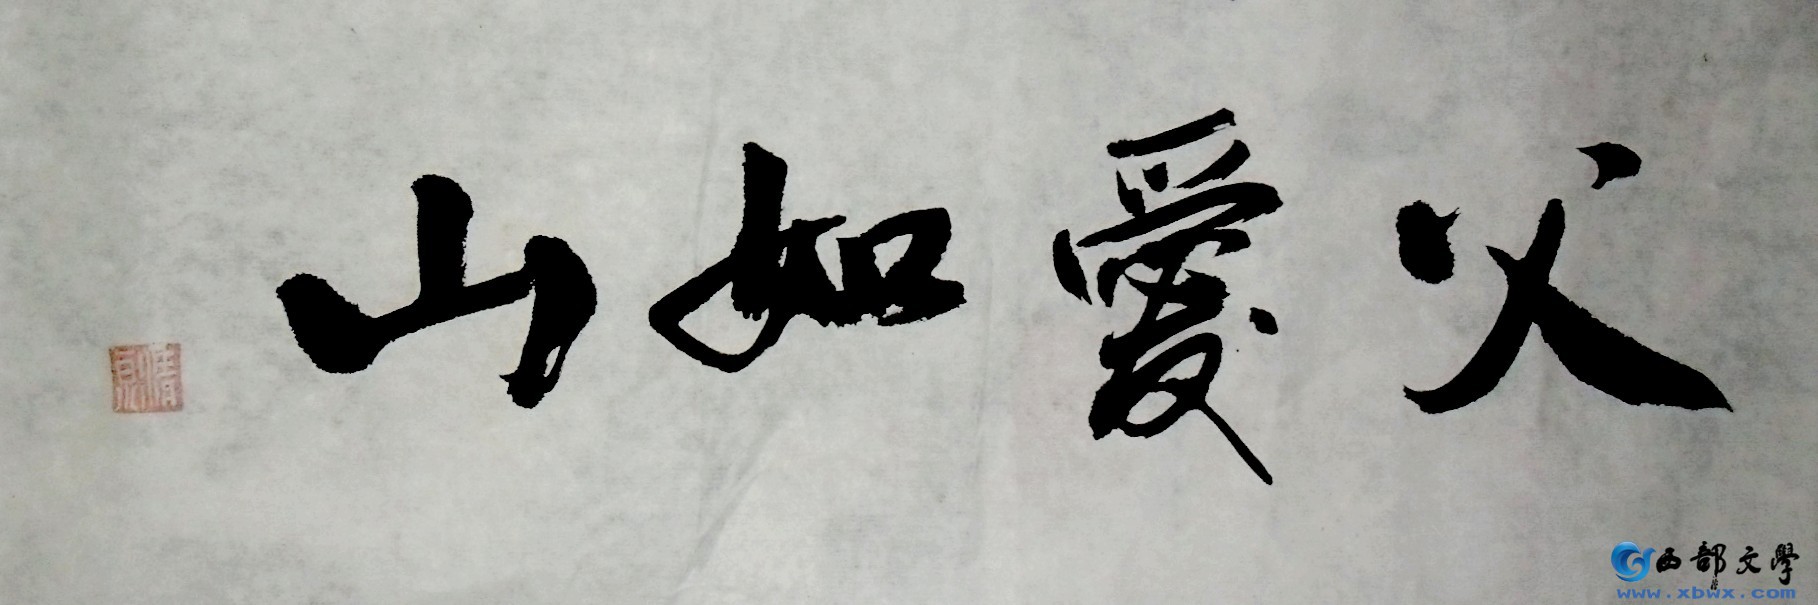 父愛如山
西部文學
www.xbwx.com